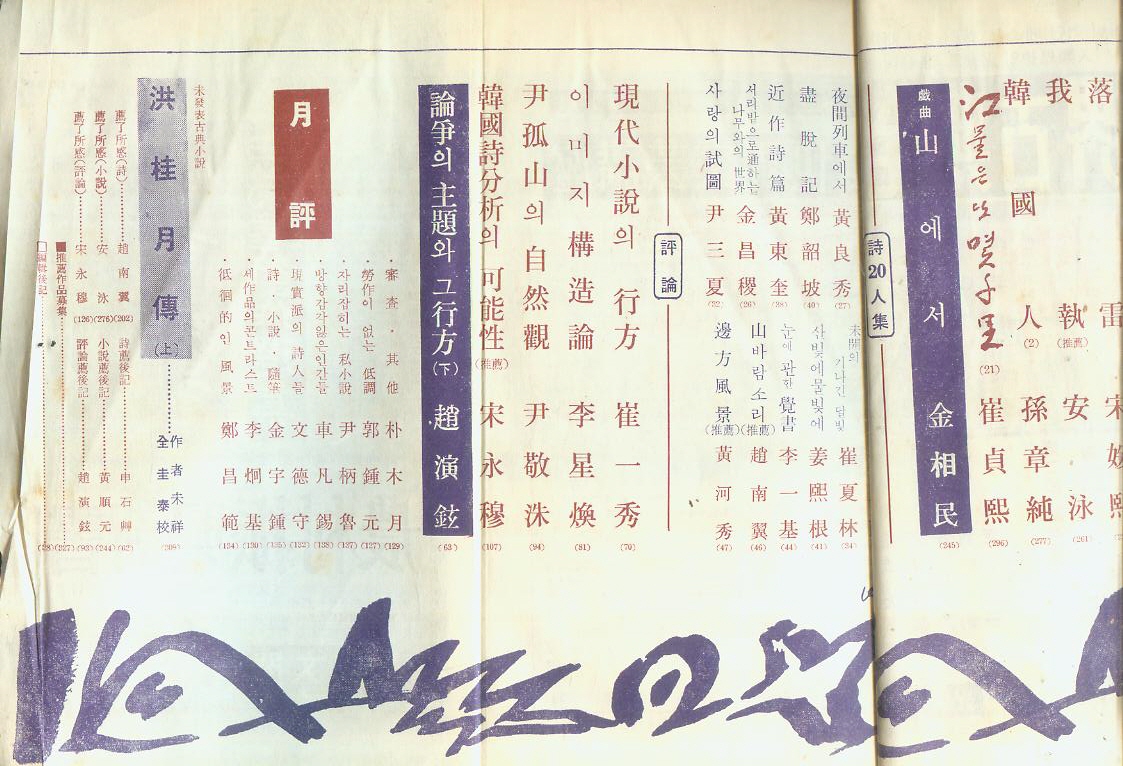 落 雷 宋
我 執 (推薦) 安 泳 (261)
韓 國 人 (2) 孫章純 (277)
江물은 또 몇 千里 (21) 崔貞熙 (296)
戱曲 山에서 金相民 (245)
詩20人集
夜間列車에서 黃良秀 (27)
盡脫記 鄭韶坡 (40)
近作詩篇 黃東奎 (38)
서리밤으로通하는 나무와의 世界 金昌稷 (26)
사랑의試圖 尹三夏 (32)
未開의 기나긴 달빛 崔夏林 (34)
산빛에물빛에 姜熙根 (41)
눈에 관한 覺書 李一基 (44)
山바람소리 (推薦) 趙南翼 (46)
邊方風景 (推薦) 黃河秀 (47)
評論
現代小說의 行方 崔一秀 (70)
이미지 構造論 李星煥 (81)
尹孤山의 自然觀 尹敬洙 (94)
韓國詩分析의 可能性 (推薦) 宋永穆 (107)
論爭의 主題와 그 行方 (下) 趙演鉉 (63)
月評
·審査·其他 朴木月 (129)
·勞作이 없는 低調 郭鍾元 (127)
·자리잡히는 私小說 尹柄魯 (137)
·방향감각잃은인간들 車凡錫 (138)
·現實派의 詩人들 文德守 (132)
·詩·小說·隨筆 金宇鍾 (135)
·세作品의콘트라스트 李炯基 (130)
·低徊的인 風景 鄭昌範 (134)
未發表古典小說
洪桂月傳 (上) 作者未祥 全圭泰校 (209)
薦了所感(詩) 趙南翼 (202) 詩薦後記 申石艸 (62)
薦了所感(小說) 安泳 (276) 小說薦後記 黃順元 (244)
薦了所感(評論) 宋永穆 (126) 評論薦後記 趙演鉉 (93)
■推薦作品募集 (327)
□編輯後記 (328)